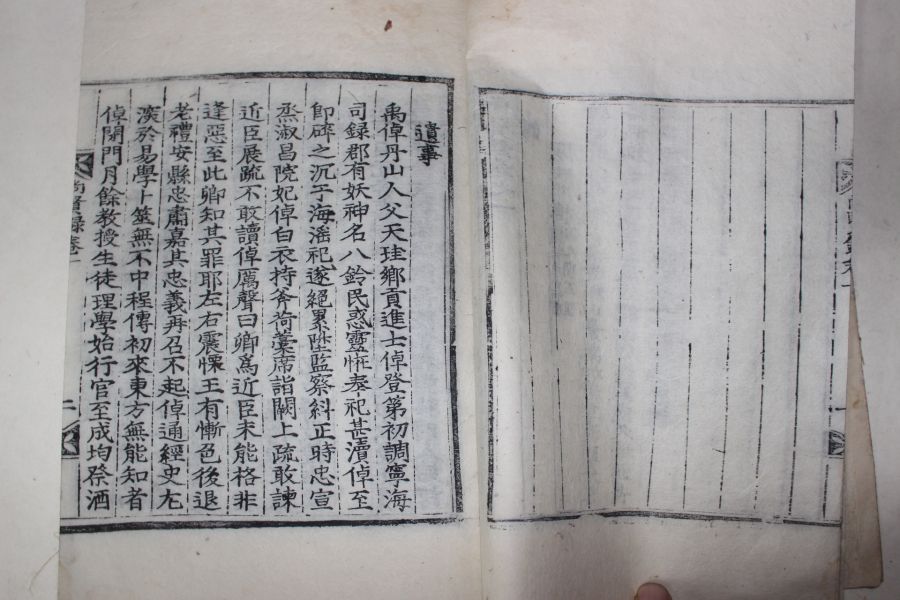 遺事
禹倬丹山人父天珪鄉貢進士倬登第初調寧海
司錄郡有妖神名八鈴民惑靈恠奉祀甚瀆倬至
卽碎之沉于海滛祀遂絕累陞監察糾正時忠宣
烝淑昌院妃倬白衣持斧荷藁席詣闕上疏敢諫
近臣展疏不敢讀倬厲聲曰卿爲近臣未能格非
逢惡至此卿知其罪耶左右震慄王有慚色後退
老禮安縣忠肅嘉其忠義再召不起倬通經史尤
深於易學卜筮無不中程傳初來東方無能知者
倬閉門月餘敎授生徒理學始行官至成均祭酒
尙賢錄卷一
二